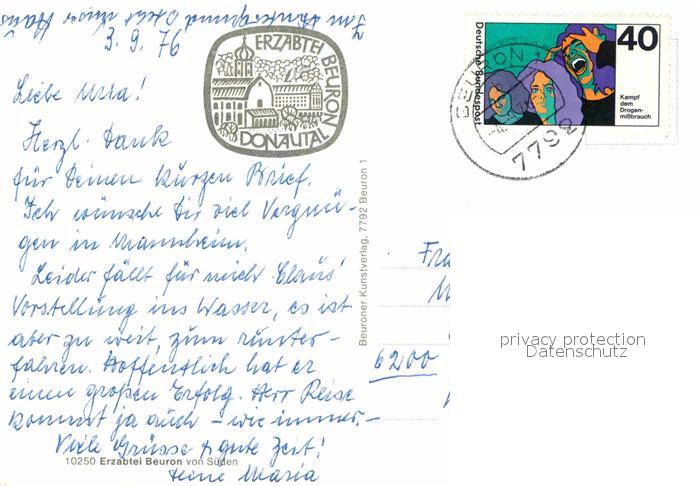 3. 9. 76
Liebe
Herzl. Dank
für Deinen kurzen Brief.
Ich wünsche Dir viel Vergnü-
gen in Mannheim.
Leider fällt für mich Claus'
Vorstellung ins Wasser, es ist
aber zu weit, zum runter-
fahren. Hoffentlich hat er
einen großen Erfolg. Herr Reise
kommt ja auch – wie immer. –
Viele Grüsse & gute Zeit!
Deine Maria
10250 Erzabtei Beuron von Süden
ERZABTEI BEURON
DONAUTAL
Beuroner Kunstverlag, 7792 Beuron 1
Deutsche Bundespost
40
Kampf
dem
Drogen-
mißbrauch
BEURON
7792
Fra
6200
privacy protection
Datenschutz